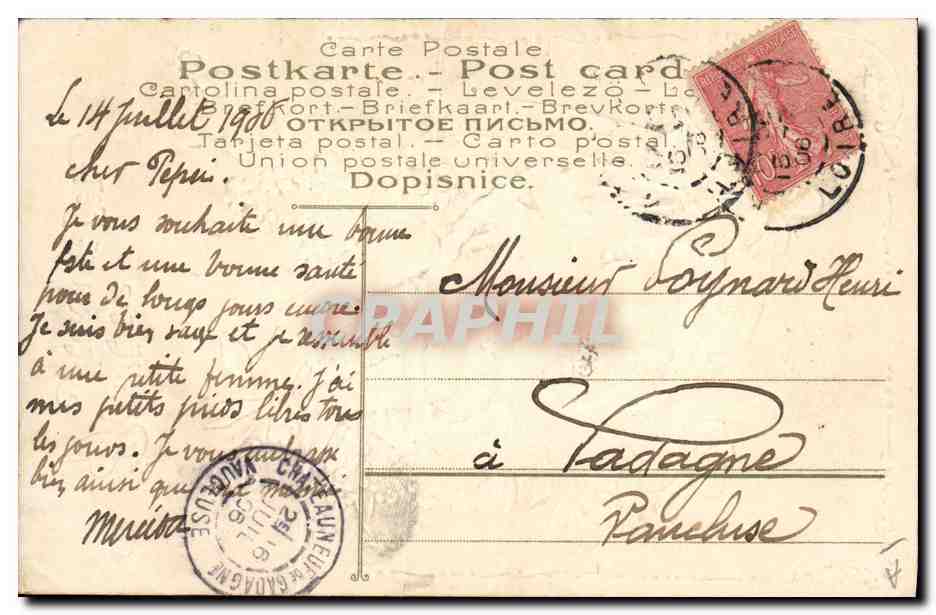 Carte Postale
Postkarte. - Post card
Cartolina postale. - Levelező - L
Brefkort - Briefkaart. - Brevkort
ОТКРЫТОЕ ПИСЬМО.
Tarjeta postal. - Carto postal.
Union postale universelle.
Dopisnice.
Le 14 Juillet 1906
cher Pepin.
Je vous souhaite une bonne
fete et une bonne santé
pour de longs jours encore.
Je suis bien sage et je ressemble
à une petite femme. J'ai
mes petits pieds libres tous
les jours. Je vous embrasse
bien ainsi que
Monsieur Poynard Henri
à Gadagne
Vaucluse
LOIRE
CHATEAUNEUF DE GADAGNE
VAUCLUSE
16
JUIL
06
CPAPHIL